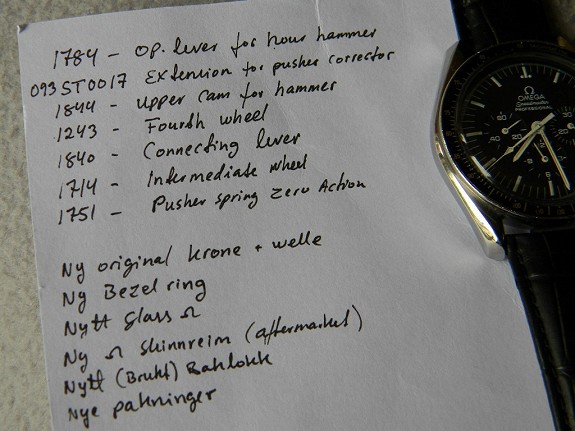 1784 - Op. lever for hour hammer
093ST0017 Extension for pusher corrector
1844 - Upper cam for hammer
1243 - Fourth wheel
1840 - Connecting lever
1714 - Intermediate wheel
1751 - Pusher spring zero Action
Ny original krone + welle
Ny Bezel ring
Nytt Glass Ω
Ny Ω skinnreim (aftermarket)
Nytt (Brukt) Baklokk
Nye pakninger
Ω
OMEGA
Speedmaster
PROFESSIONAL